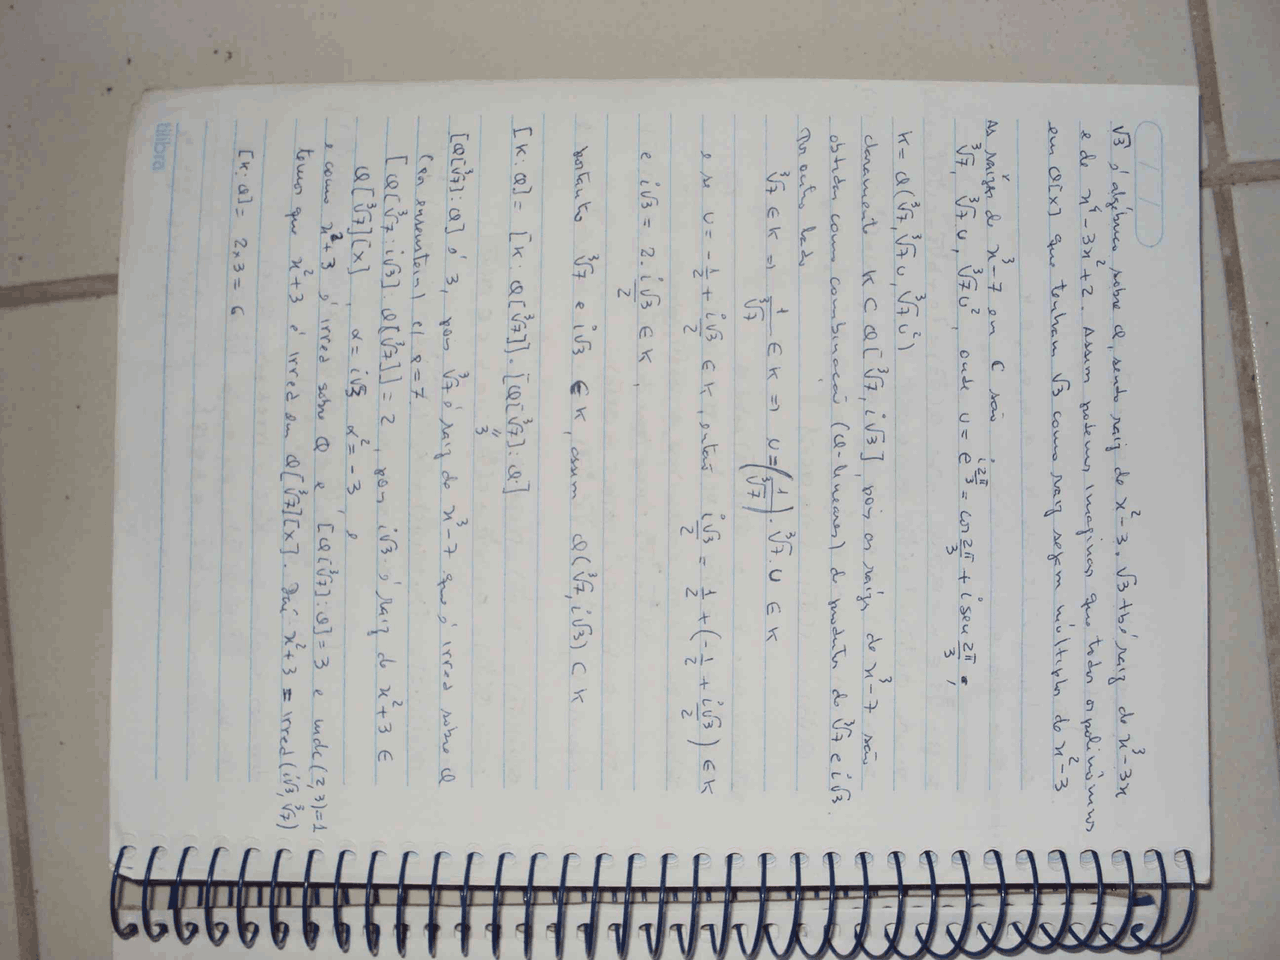 √3 é algébrico sobre Q, sendo raiz de x²-3. √3 também é raiz de x³-3x
e de x⁴-3x²+2. Assim podemos imaginar que todos os polinômios
em Q[x] que tenham √3 como raiz sejam múltiplos de x²-3
As raízes de x³-7 en C são
∛7, ∛7u, ∛7u², onde u = e^(i2π/3) = cos 2π/3 + i sen 2π/3,
K = Q(∛7, ∛7u, ∛7u²)
claramente K ⊂ Q[∛7, i√3], pois as raízes de x³-7 são
obtidas como combinação (Q-lineares) de produtos de ∛7 e i√3
Por outro lado
∛7 ∈ K ⇒ 1/∛7 ∈ K ⇒ u = (1/∛7).∛7.u ∈ K
e se u = -1/2 + i√3/2 ∈ K, então i√3/2 = 1/2 + (-1/2 + i√3/2) ∈ K
e i√3 = 2. i√3/2 ∈ K,
portanto ∛7 e i√3 ∈ K, assim Q(∛7, i√3) ⊂ K
[K:Q] = [K:Q[∛7]].[Q[∛7]:Q]
"
3
[Q[∛7]:Q] é 3, pois ∛7 é raiz de x³-7 que é irred sobre Q
(por einenstein) c/ p=7
[Q[∛7:i√3].Q[∛7]] = 2, pois i√3 é raiz de x²+3 ∈
Q[∛7][x], α = i√3 α² = -3, e
e como x²+3 é irred sobre Q e [Q[∛7]:Q] = 3 e mdc(2,3)=1
temos que x²+3 é irred em Q[∛7][x]. Daí x²+3 = irred(i√3,∛7)
[K:Q] = 2x3 = 6
tilibra